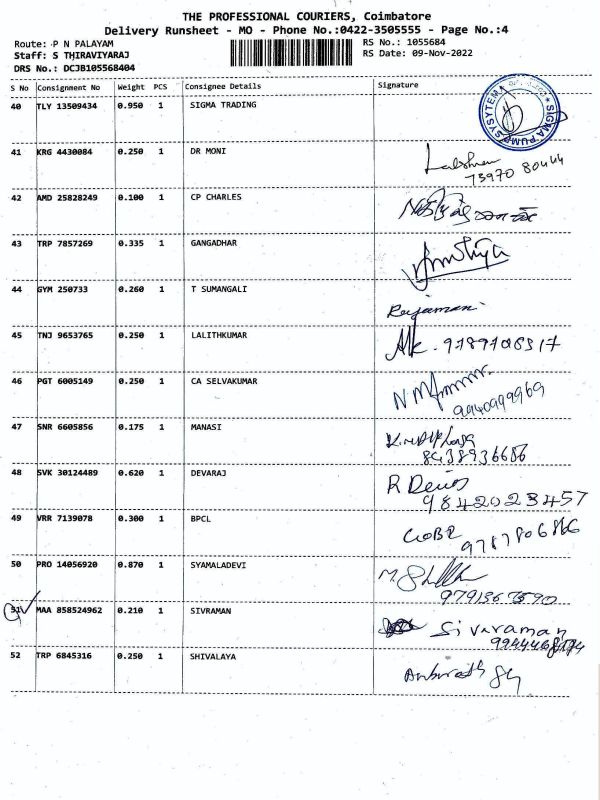 THE PROFESSIONAL COURIERS, Coimbatore
Delivery Runsheet - MO - Phone No.:0422-3505555 - Page No.:4
Route: P N PALAYAM
RS No.: 1055684
Staff: S THIRAVIYARAJ
RS Date: 09-Nov-2022
DRS No.: DCJB105568404
S No Consignment No Weight PCS Consignee Details Signature
40 TLY 13509434 0.950 1 SIGMA TRADING
SIGMA PUMP SYSYTEMA
41 KRG 4430084 0.250 1 DR MONI
73970 80444
42 AMD 25828249 0.100 1 CP CHARLES
43 TRP 7857269 0.335 1 GANGADHAR
44 GYM 250733 0.260 1 T SUMANGALI Rajamani
45 TNJ 9653765 0.250 1 LALITHKUMAR
46 PGT 6005149 0.250 1 CA SELVAKUMAR
9940999969
47 SNR 6605856 0.175 1 MANASI
8438936686
48 SVK 30124489 0.620 1 DEVARAJ
9842023457
49 VRR 7139078 0.300 1 BPCL
9787806866
50 PRO 14056920 0.870 1 SYAMALADEVI
51 MAA 858524962 0.210 1 SIVRAMAN
Sivaraman
52 TRP 6845316 0.250 1 SHIVALAYA